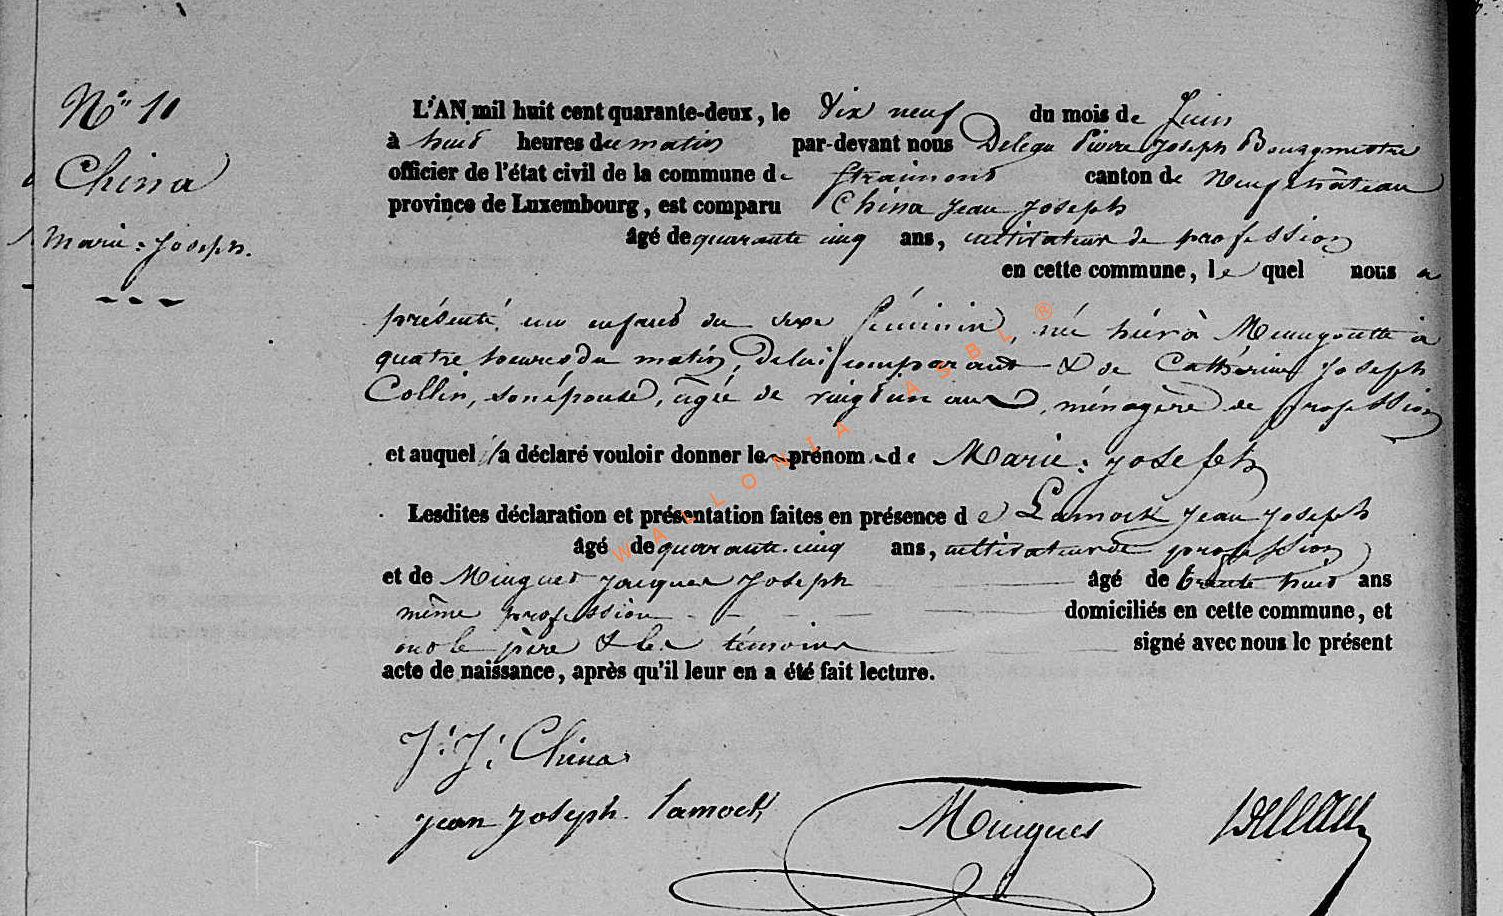 N° 11
China
Marie = Joseph.
L'AN mil huit cent quarante-deux, le dix neuf du mois de Juin
à huit heures du matin par-devant nous Pierre Joseph Bourgmestre
officier de l'état civil de la commune de Straimont canton de Neufchâteau
province de Luxembourg, est comparu China Jean Joseph
âgé de quarante cinq ans, cultivateur de profession
en cette commune, le quel nous a
présenté un enfant du sexe féminin, née hier à Menugoutte à
quatre heures du matin, de lui comparant & de Cathérine Joseph
Collin, son épouse, âgée de vingt un ans, ménagère de profession
et auquel il a déclaré vouloir donner le prénom de Marie = Joseph
Lesdites déclaration et présentation faites en présence de Lamock Jean Joseph
âgé de quarante-cinq ans, cultivateur de profession
et de Jacques Joseph âgé de trente huit ans
même profession domiciliés en cette commune, et
ont le père & les témoins signé avec nous le présent
acte de naissance, après qu'il leur en a été fait lecture.
J. J. China
Jean Joseph Lamock
WALLONIA ASBL ®